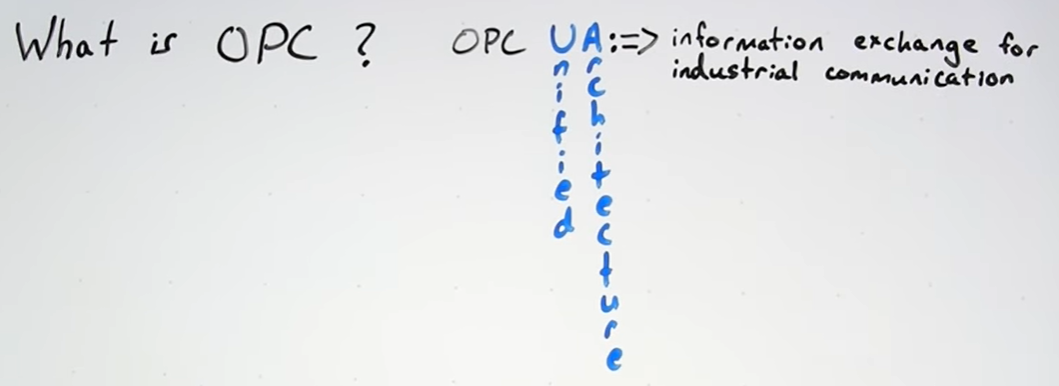 What is OPC ? OPC UA :=> information exchange for
industrial communication
Unified
Architecture